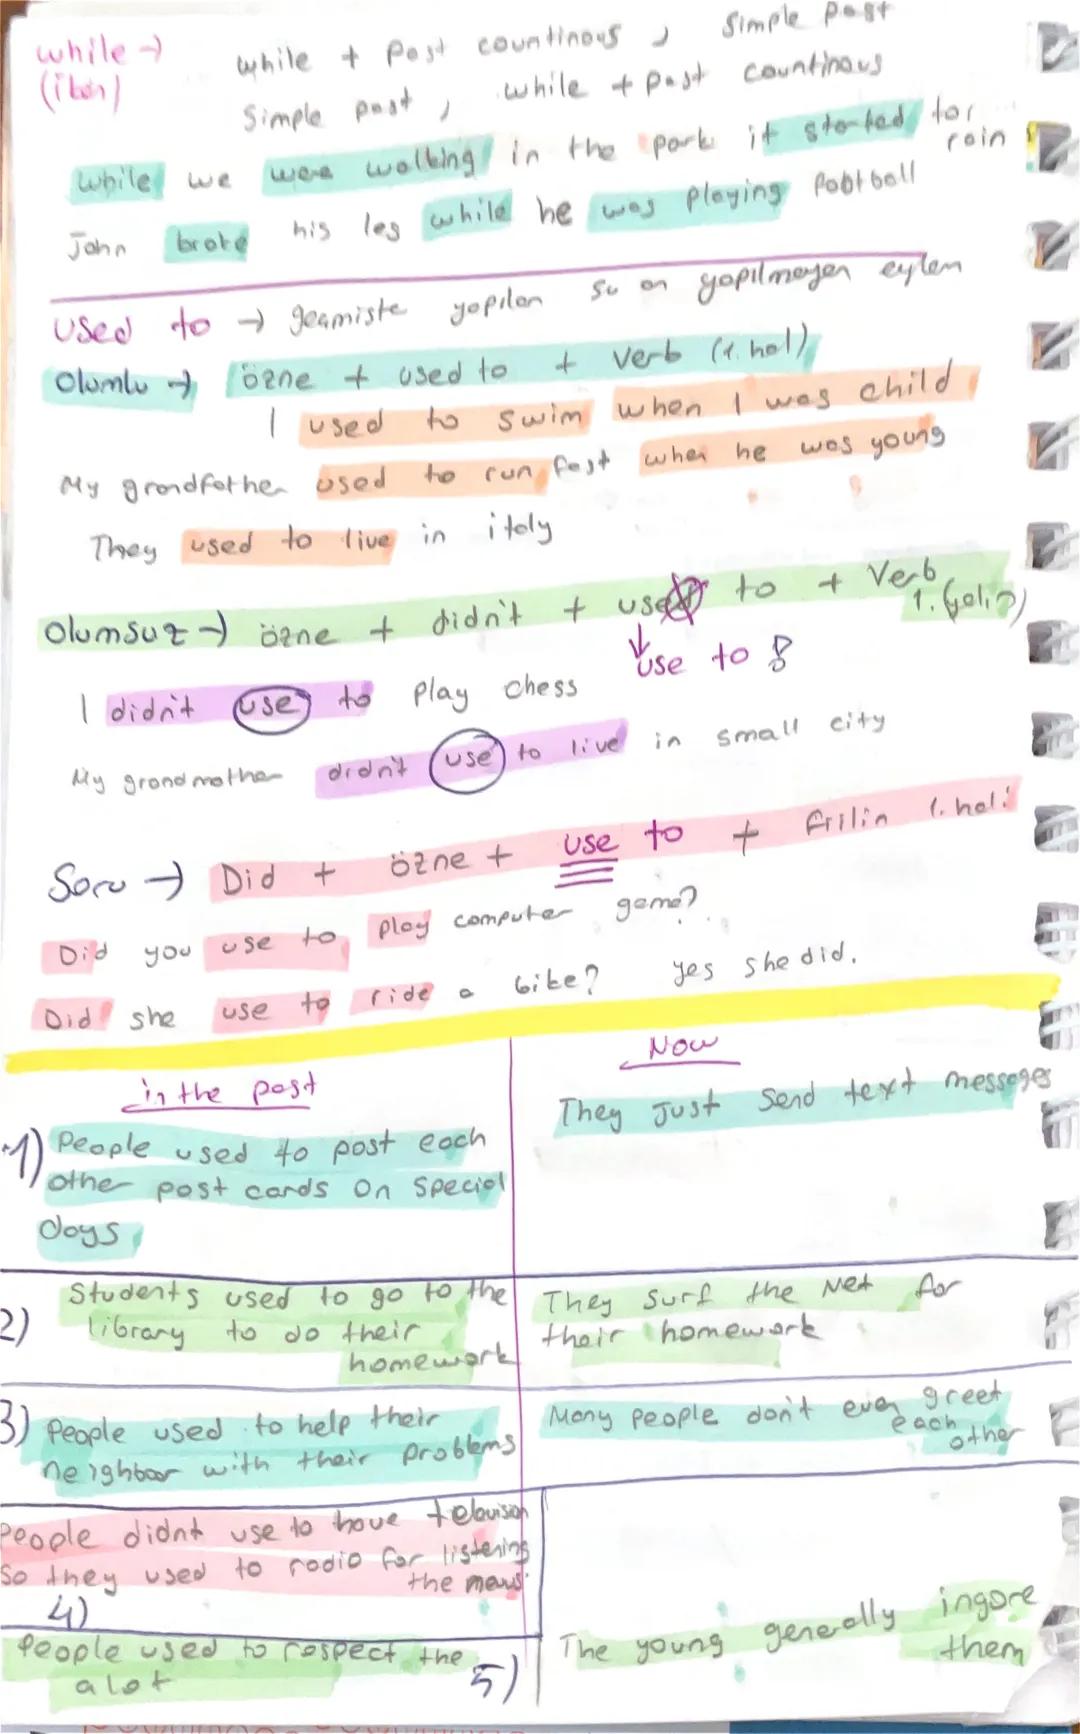 while → while + Past countinous, simple past
(iken) Simple past, while + past countinous
while we were walking in the park it started to rain
John broke his leg while he was playing football
used to → geçmişte yapılan şu an yapılmayan eylem
Olumlu → özne + used to + Verb (1. hal)
I used to swim when I was child
My grandfather used to run fast when he was young
They used to live in italy
Olumsuz → özne + didn't + used to + Verb 1. (yalın)
↓
use to !
I didn't use to play chess
My grandmother didn't use to live in small city
Soru → Did + özne + use to + fiilin 1. hali
Did you use to play computer game?
Did she use to ride a bike? yes she did.
in the past
Now
1) People used to post each
other post cards on special
days
They just send text messages
2) Students used to go to the
library to do their
homework
They surf the Net for
their homework
3) People used to help their
neighboor with their problems
Many people don't even greet
each
other
People didnt use to have
so they used to radio for listening
the
4)
People used to respect the
a lot
5)
The young generally ingore
them